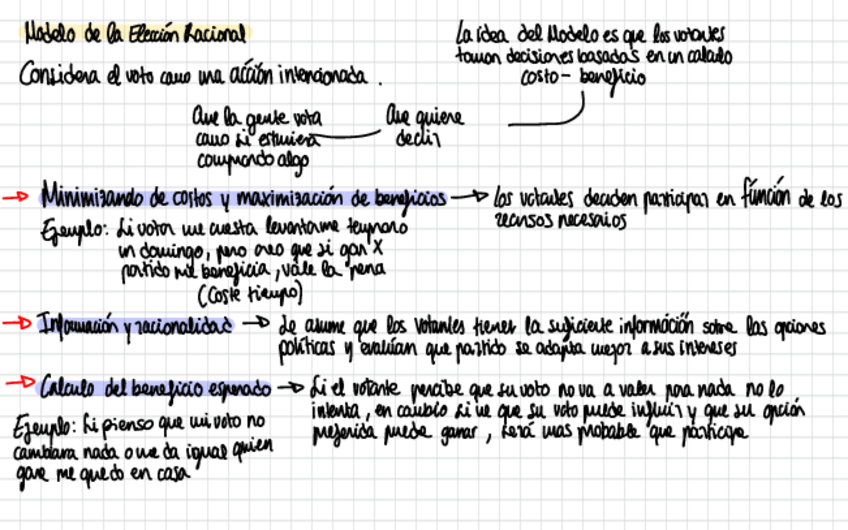 Modelo de la Elección Racional
Considera el voto como una acción intencionada.
La idea del Modelo es que los votantes
toman decisiones basadas en un calculo
costo - beneficio
Que quiere
decir
Que la gente vota
como si estuviera
comprando algo
→ Minimizando de costos y maximización de beneficios → Los votantes deciden participar en función de los
recursos necesarios
Ejemplo: Si votar me cuesta levantarme temprano
un domingo, pero creo que si gan X
partido me beneficia, vale la pena
(Coste tiempo)
→ Información y racionalidad → Se asume que los votantes tienen la suficiente información sobre las opciones
políticas y evalúan que partido se adapta mejor a sus intereses
→ Calculo del beneficio esperado → Si el votante percibe que su voto no va a valer para nada no lo
intenta, en cambio si ve que su voto puede influir y que su opción
preferida puede ganar, será mas probable que participe
Ejemplo: Si pienso que mi voto no
cambiara nada o me da igual quien
gane me quedo en casa